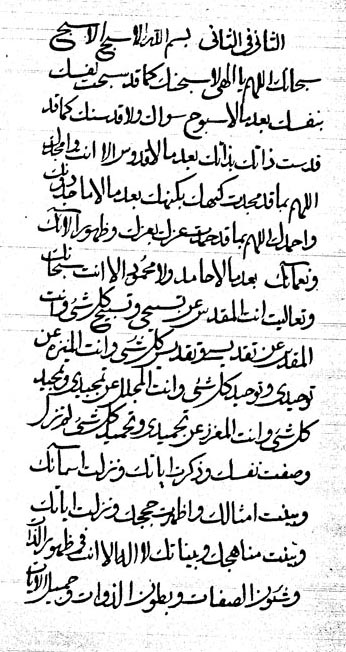 الثانی فی الثانی بسم الله الاسبح الاسبح
سبحانك اللهم یا الهی لاسبحنك كما قد سبحت نفسك
بنفسك بعد ما لا سبوح سواك ولاقدسنك كما قد
قدست ذاتك بذاتك بعد ما لا قدوس الا انت ولامجدنك
اللهم بما قد مجدت كینونك بكنهك بعد ما لا ماجد دونك
واحمدنك اللهم بما قد حمدت عزك بعزك وظهور آلائك
ونعمائك بعد ما لا حامد ولا محمود الا انت سبحانك
وتعالیت انت المقدس عن تسبیحی وتسبیح كل شیء وانت
المقدس عن تقدیسی وتقدیس كل شیء وانت المنزه عن
توحیدی وتوحید كل شیء وانت المجلل عن تمجیدی وتمجید
كل شیء وانت المعزز عن تحمیدی وتحمید كل شیء لم تزل
وصفت نفسك وذكرت ایاتك ونزلت اسمائك
وبینت امثالك واظهرت حججك ونزلت ایاتك
وبینت مناهجك وبیناتك لا اله الا انت فی ظهور الذات
وشئون الصفات وبطون الذوات و